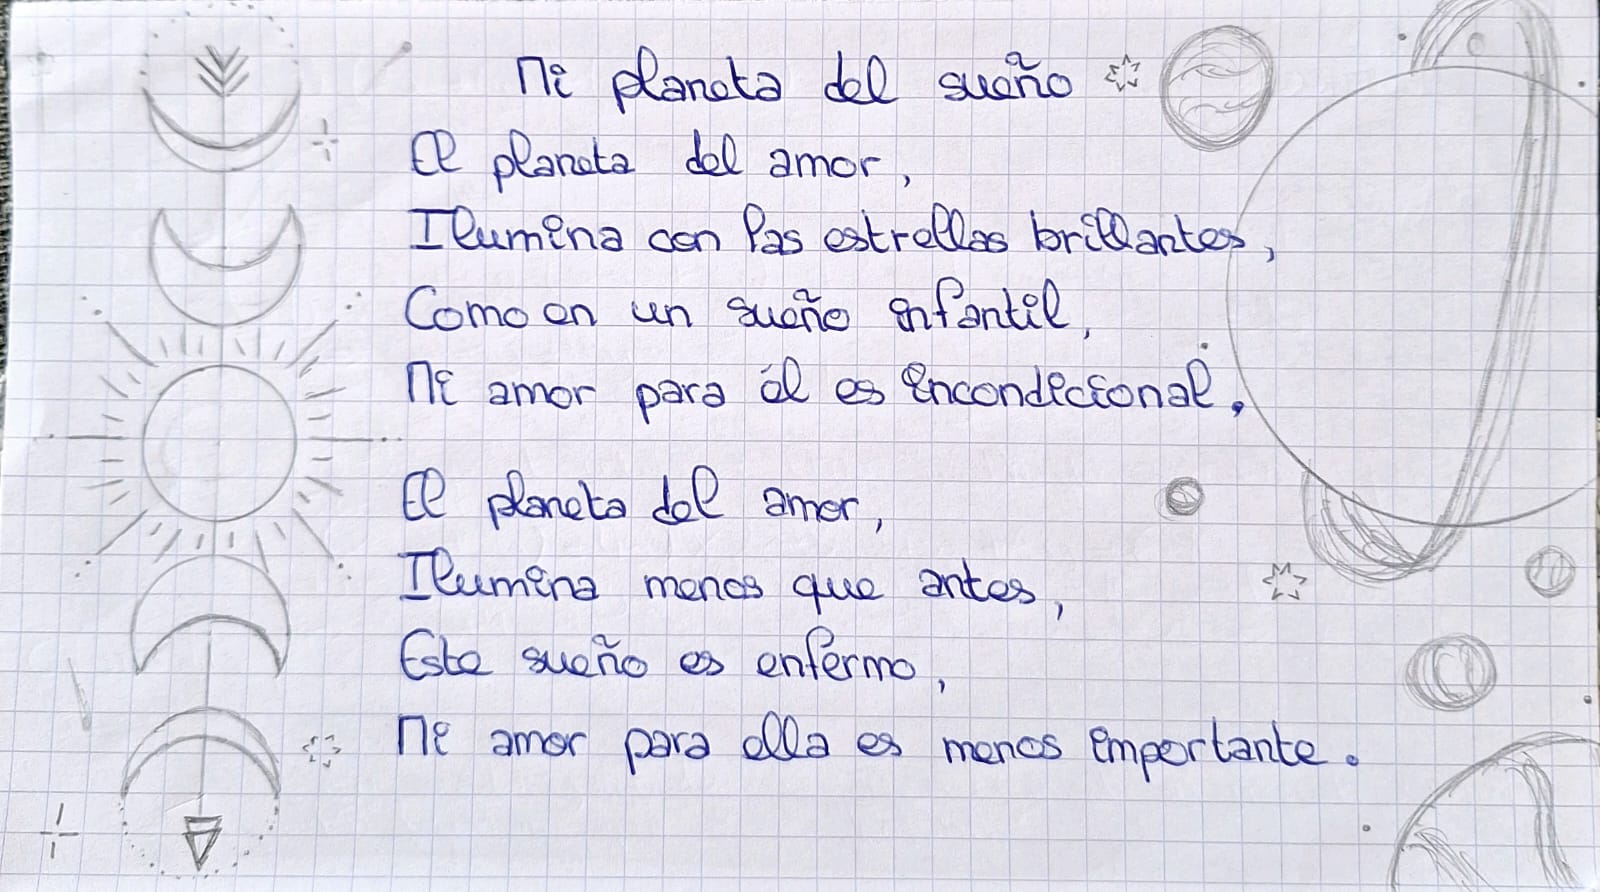 Mi planeta del sueño
El planeta del amor,
Ilumina con las estrellas brillantes,
Como en un sueño infantil,
Mi amor para él es incondicional.
El planeta del amor,
Ilumina menos que antes,
Este sueño es enfermo,
Mi amor para ella es menos importante.